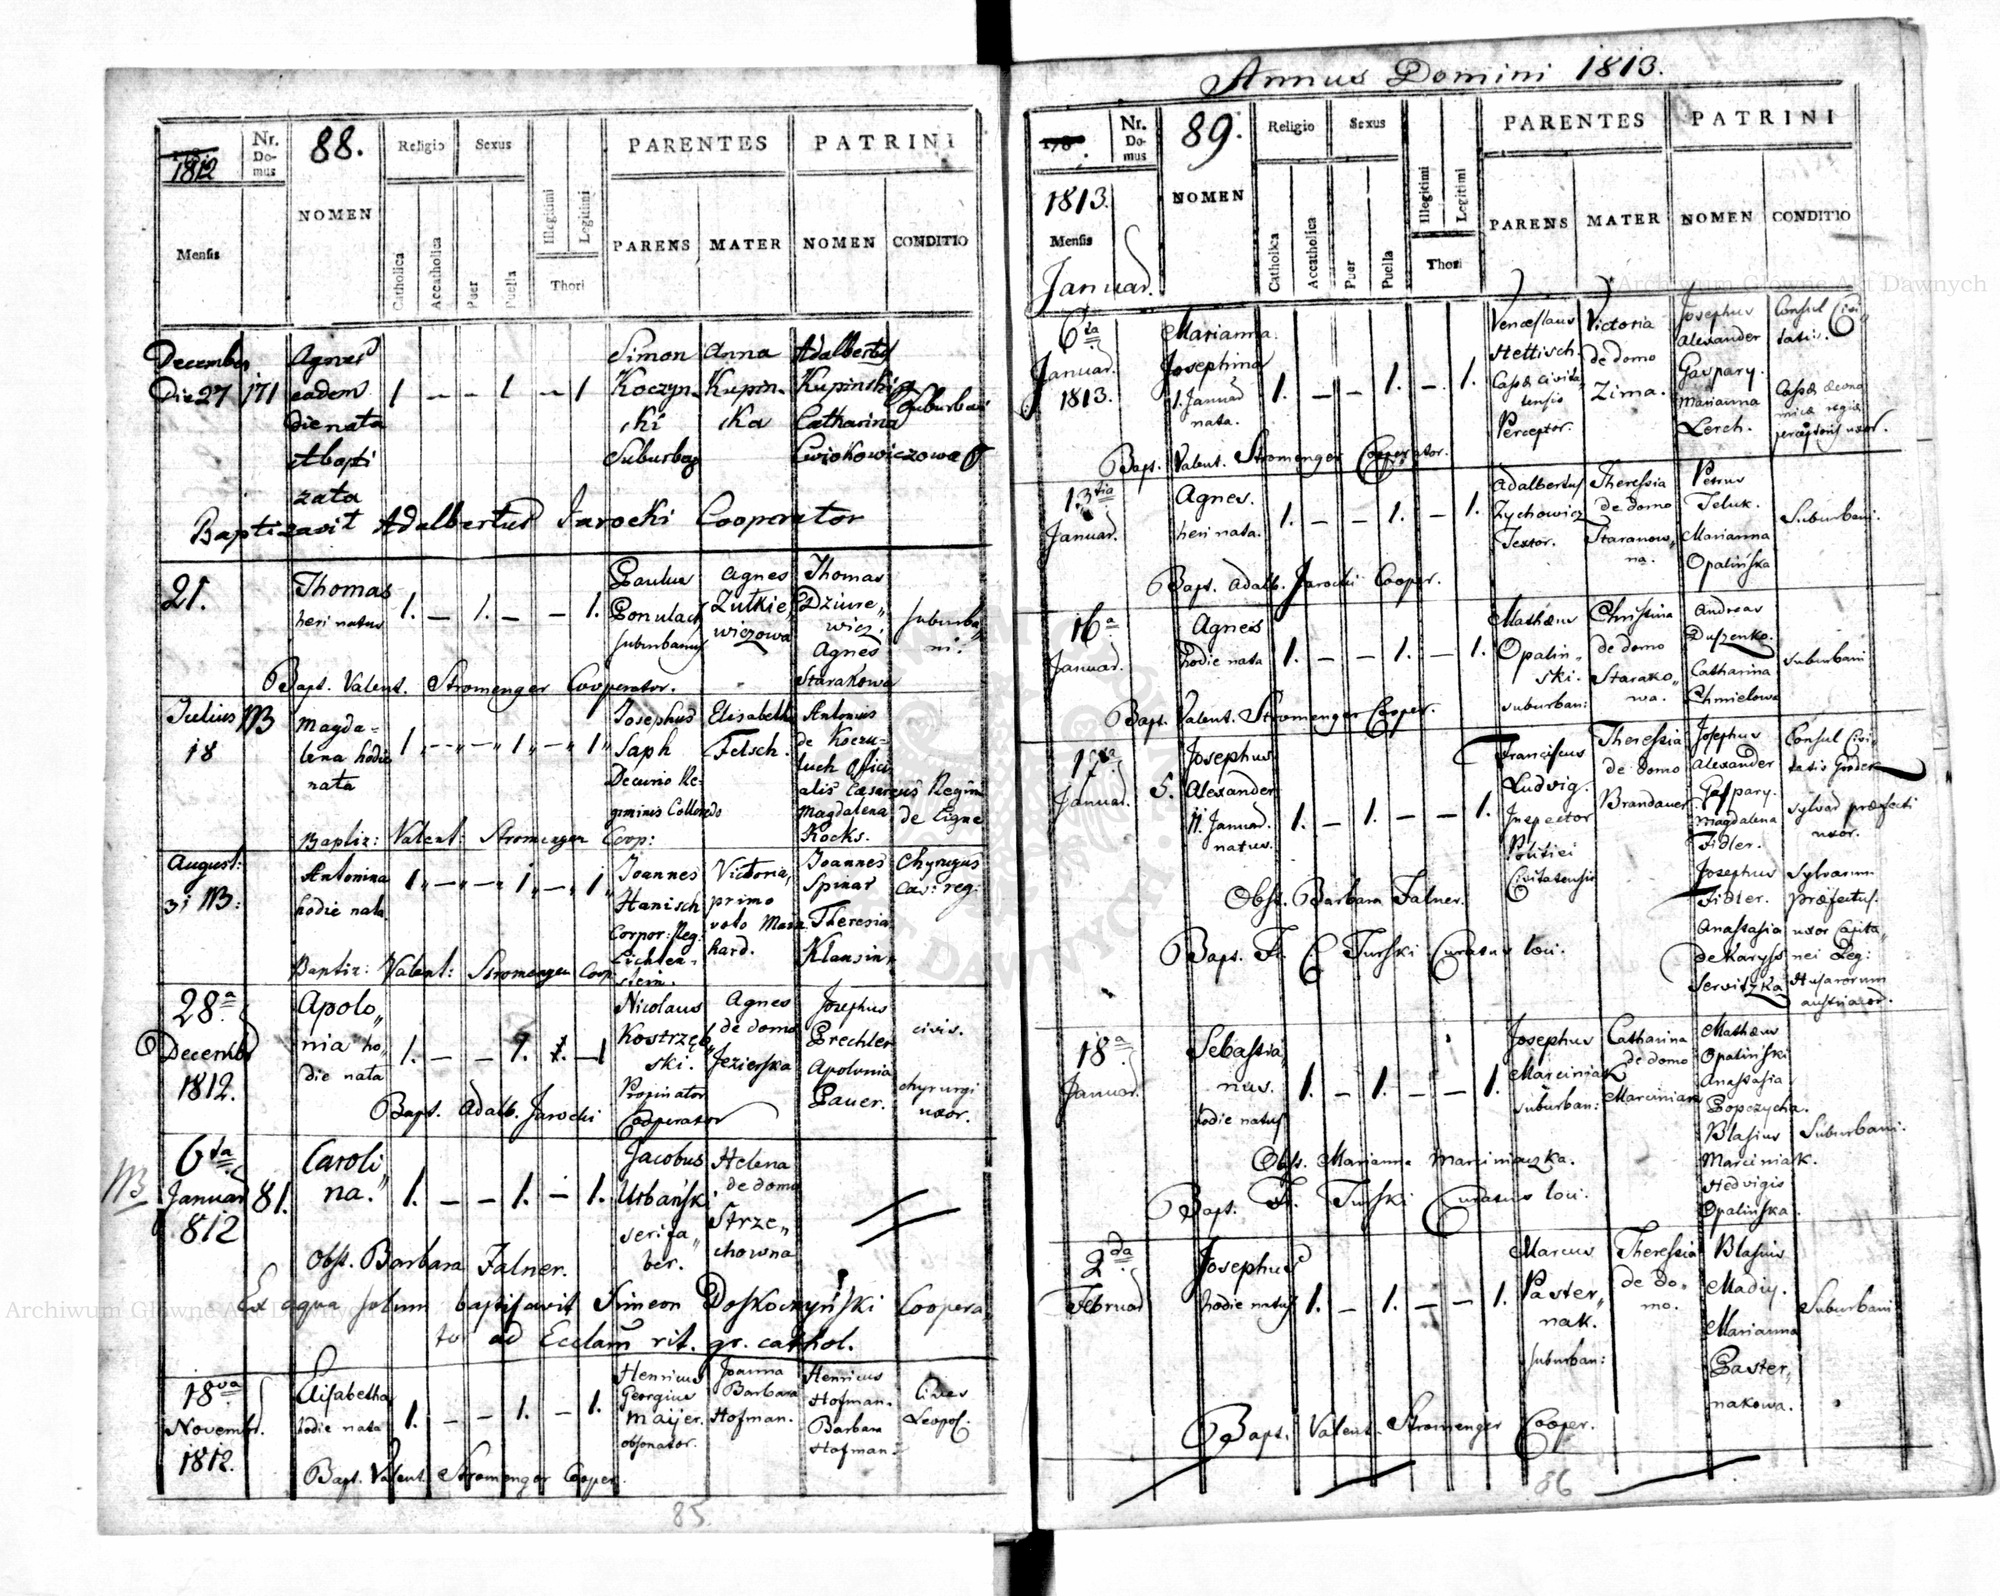 1812
Nr. Domus
88.
Religio
Sexus
PARENTES
PATRINI
Mensis
NOMEN
Catholica
Accatholica
Puer
Puella
Illegitimi
Legitimi
Thori
PARENS
MATER
NOMEN
CONDITIO
December
Die 27
171
Agnes
eadem
die nata
et bapti
zata
1 — — 1 — 1
Simon
Koczyn-
ski
Suburbag
Anna
Kupin-
ska
Adalbertus
Kupinski
Catharina
Cwiokowiczowa
Suburbani
Baptizavit Adalbertus Jarocki Cooperator
21.
Thomas
heri natus
1. — 1. — — 1.
Paulus
Ponulach
suburbanus
Agnes
Zutkie„
wiczowa
Thomas
Dziure„
wicz.
Agnes
Starakowa
suburba„
ni.
Bapt. Valent. Stromenger Cooperator.
Julius
18
NB
Magda-
lena hodie
nata
1 „ — „ — „ 1 „ — „ 1 „
Josephus
Saph
Decurio Re-
giminis Colloredo
Elisabetha
Felsch.
Antonius
de Koczu-
tuch Offici
alis Caesareus Regius
Magdalena
Kocks.
de Eigne
Baptiz: Valent: Stromenger Coop:
August:
31 NB:
Antonina
hodie nata
1 „ — „ — „ 1 „ — „ 1 „
Joannes
Hanisch
Corpor: Reg:
Lichten-
stein.
Victoria,
primo
voto Mara
hard.
Joannes
Spinar
Theresia
Klansin
Chyrurgus
Caes: reg:
Baptiz: Valent: Stromenger Coop
28ª
Decembr
1812.
Apolo„
nia ho„
die nata
1. — — 1. — 1
Nicolaus
Kostrzęb„
ski.
Propinator
Agnes
de domo
Jezierska
Josephus
Prechler
Apolonia
Pauer.
civis.
chyrurgi
uxor.
Bapt. Adalb. Jarocki Cooperator
NB
6ta
Januar
812
81.
Caroli
na.
1. — — 1. — 1.
Jacobus
Urbański
scriba„
ber.
Helena
de domo
Strze„
chowna
Obst. Barbara Falner.
Ex aqua solum baptisavit Simeon Doskoczyński Coopera„
tor ad Ecclam rit. gr. cathol.
18va
Novembr.
1812.
Elisabetha
hodie nata
1. — — 1. — 1.
Henricus
Georgius
Maijer.
obsonator.
Joanna
Barbara
Hofman.
Henricus
Hofman.
Barbara
Hofman.
Cives
Leopol.
Bapt. Valent. Stromenger Cooper.
85
Annus Domini 1813.
Nr. Domus
89.
Religio
Sexus
PARENTES
PATRINI
1813.
Mensis
Januar.
NOMEN
Catholica
Accatholica
Puer
Puella
Illegitimi
Legitimi
Thori
PARENS
MATER
NOMEN
CONDITIO
6ta
Januar.
1813.
Marianna
Josephina
1. Januar
nata.
1. — — 1. — 1.
Venceslaus
Hettisch.
Cassae civita
tensis
Perceptor.
Victoria
de domo
Zima.
Josephus
Alexander
Gaspary.
Marianna
Lerch.
Consul Civi„
tatis.
Cassae oecono
micae regiae
perceptoris uxor.
Bapt. Valent. Stromenger Cooperator.
13tia
Januar.
Agnes.
heri nata.
1. — — 1. — 1.
Adalbertus
Zychowicz
Textor.
Theressia
de domo
Staranow„
na.
Petrus
Teluk.
Marianna
Opalińska
Suburbani.
Bapt. Adalb. Jarocki Cooper.
16ª
Januar.
Agnes
hodie nata
1. — — 1. — 1.
Mathaeus
Opalin„
ski.
suburban:
Christina
de domo
Starako„
wa.
Andreas
Duszenko.
Catharina
Chmielowa
suburbani
Bapt. Valent. Stromenger Cooper.
17ma
Januar.
5.
Josephus
Alexander
11. Januar.
natus.
1. — 1. — — 1.
Franciscus
Ludvig.
Inspector
Politiei
Civitatensis
Theressia
de domo
Brandauer.
Josephus
Alexander
Gaspary.
Magdalena
Fidler.
Josephus
Fidler.
Anastasia
de Karyss
Servitzka
Consul Civi„
tatis Grodek
sylvar praefecti
uxor.
Sylvarum
praefectus.
uxor Capita„
nei Reg:
Husarorum
austriacor.
Obst. Barbara Falner.
Bapt. Fr. C. Turski Curatus loci.
18ª
Januar.
Sebastia„
nus.
hodie natus
1. — 1. — — 1.
Josephus
Marciniak
suburban:
Catharina
de domo
Marciniara
Mathaeus
Opaliński
Anastasia
Popczycha.
Blasius
Marciniak.
Hedvigis
Opalińska
Suburbani.
Obst. Marianna Marciniaczka.
Bapt. Fr. Turski Curatus loci.
2da
Februar
Josephus
hodie natus
1. — 1. — — 1.
Marcus
Paster„
nak.
suburban:
Theressia
de do„
mo.
Blasius
Madiy.
Marianna
Paster„
nakowa.
Suburbani
Bapt. Valent. Stromenger Cooper.
86
Archiwum Główne Akt Dawnych
Archiwum Główne Akt Dawnych